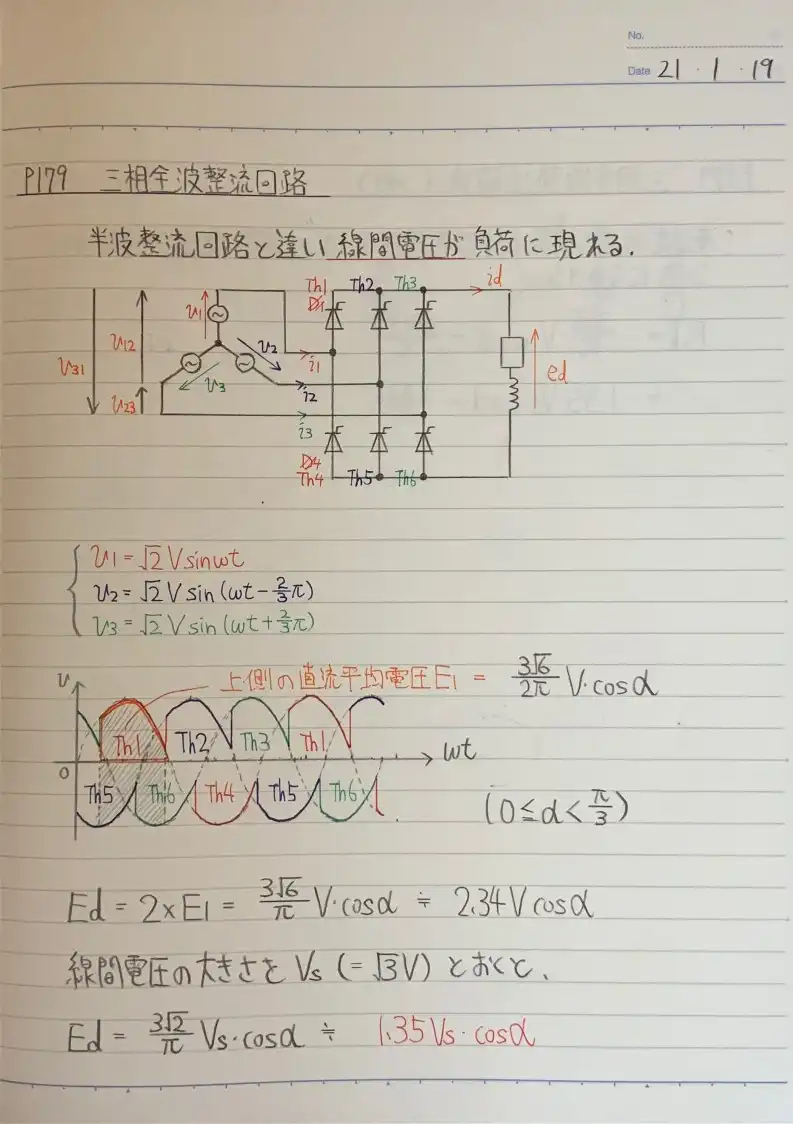 No.
Date 21・1・19
P179 三相全波整流回路
半波整流回路と違い線間電圧が負荷に現れる.
Th1 Th2 Th3 id
D1
v1
v12 v2
v31 i1 ed
v3
v23 i2
i3
D4
Th4 Th5 Th6
v1=√2Vsinωt
v2=√2Vsin(ωt-2/3π)
v3=√2Vsin(ωt+2/3π)
v 上側の直流平均電圧E1 = 3√6/2π V・cosα
Th1 Th2 Th3 Th1 ωt
0
Th5 Th6 Th4 Th5 Th6 (0≦α<π/3)
Ed = 2×E1 = 3√6/π V・cosα ≒ 2.34Vcosα
線間電圧の大きさをVs(=√3V)とおくと、
Ed = 3√2/π Vs・cosα ≒ 1.35Vs・cosα